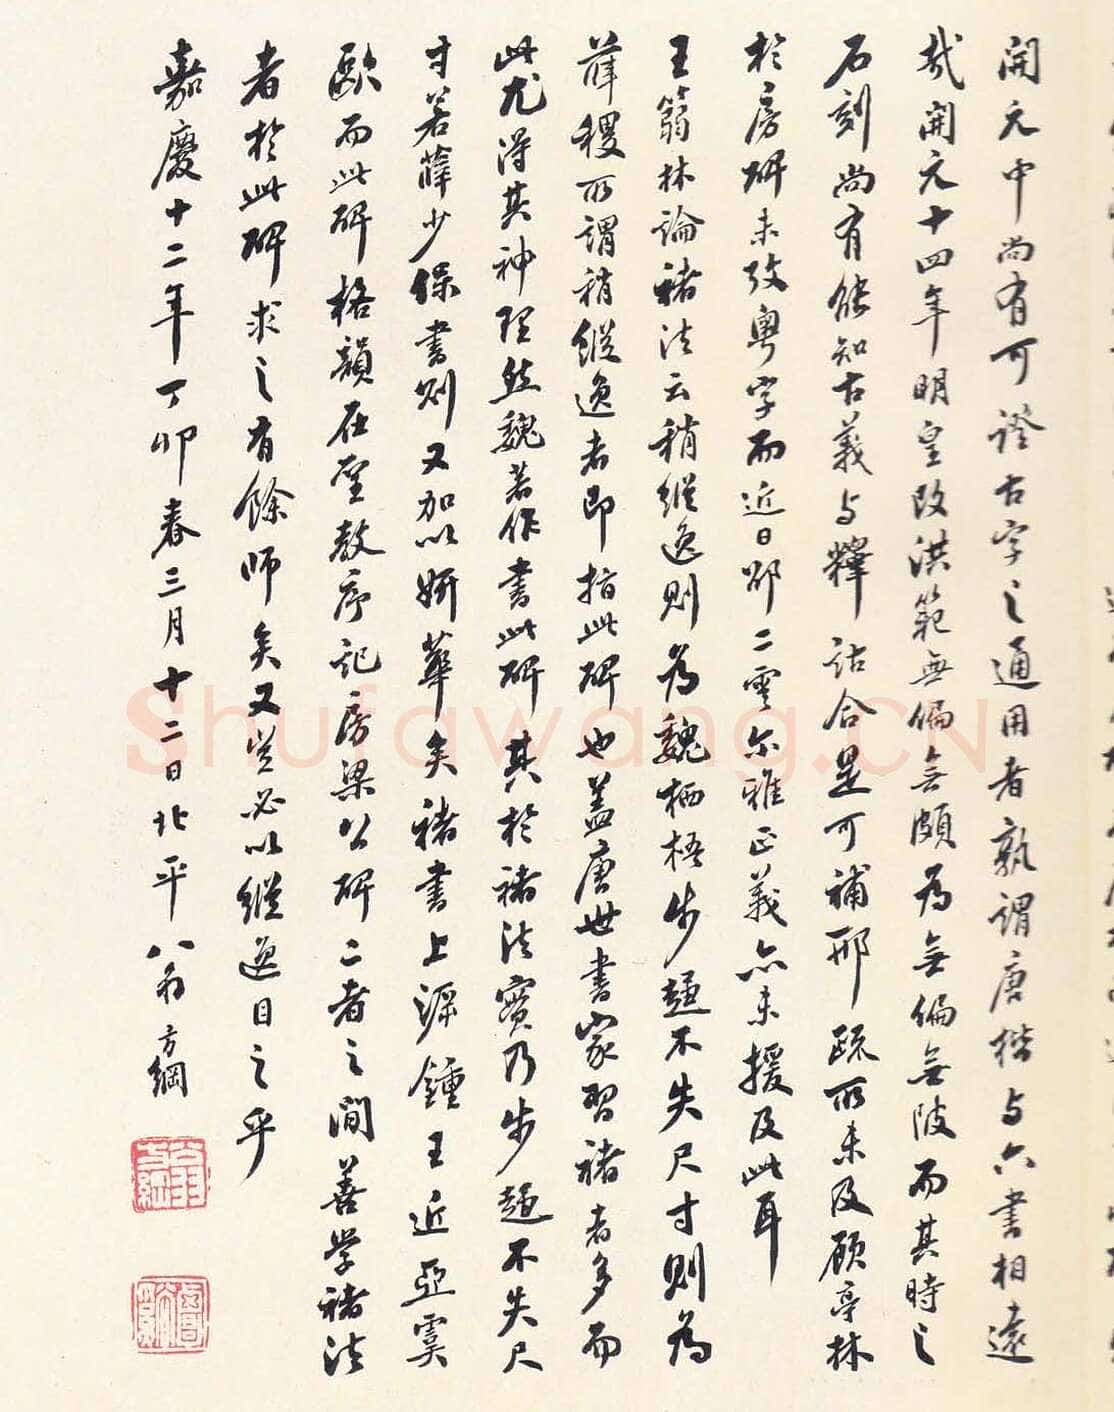 開元中尚有可證古字之通用者孰謂唐楷与六書相遠
哉開元十四年明皇改洪範無偏無頗為無偏無陂而其時之
石刻尚有能知古義与釋詁合是可補邢疏所未及顧亭林
於房碑未攷粵字而近日邵二雲尔雅正義亦未援及此耳
王蒻林論褚法云稍縱逸則為魏栖梧步趨不失尺寸則為
薛稷所謂稍縱逸者即指此碑也蓋唐世書家習褚者多而
此尤得其神理然魏著作書此碑其於褚法實乃步趨不失尺
寸若薛少保書則又加以妍華矣褚書上源鍾王近亞虞
歐而此碑格韻在聖教序記房梁公碑二者之間善學褚法
者於此碑求之有餘師矣又豈必以縱逸目之乎
嘉慶十二年丁卯春三月十二日北平翁方綱
Shufawang.CN